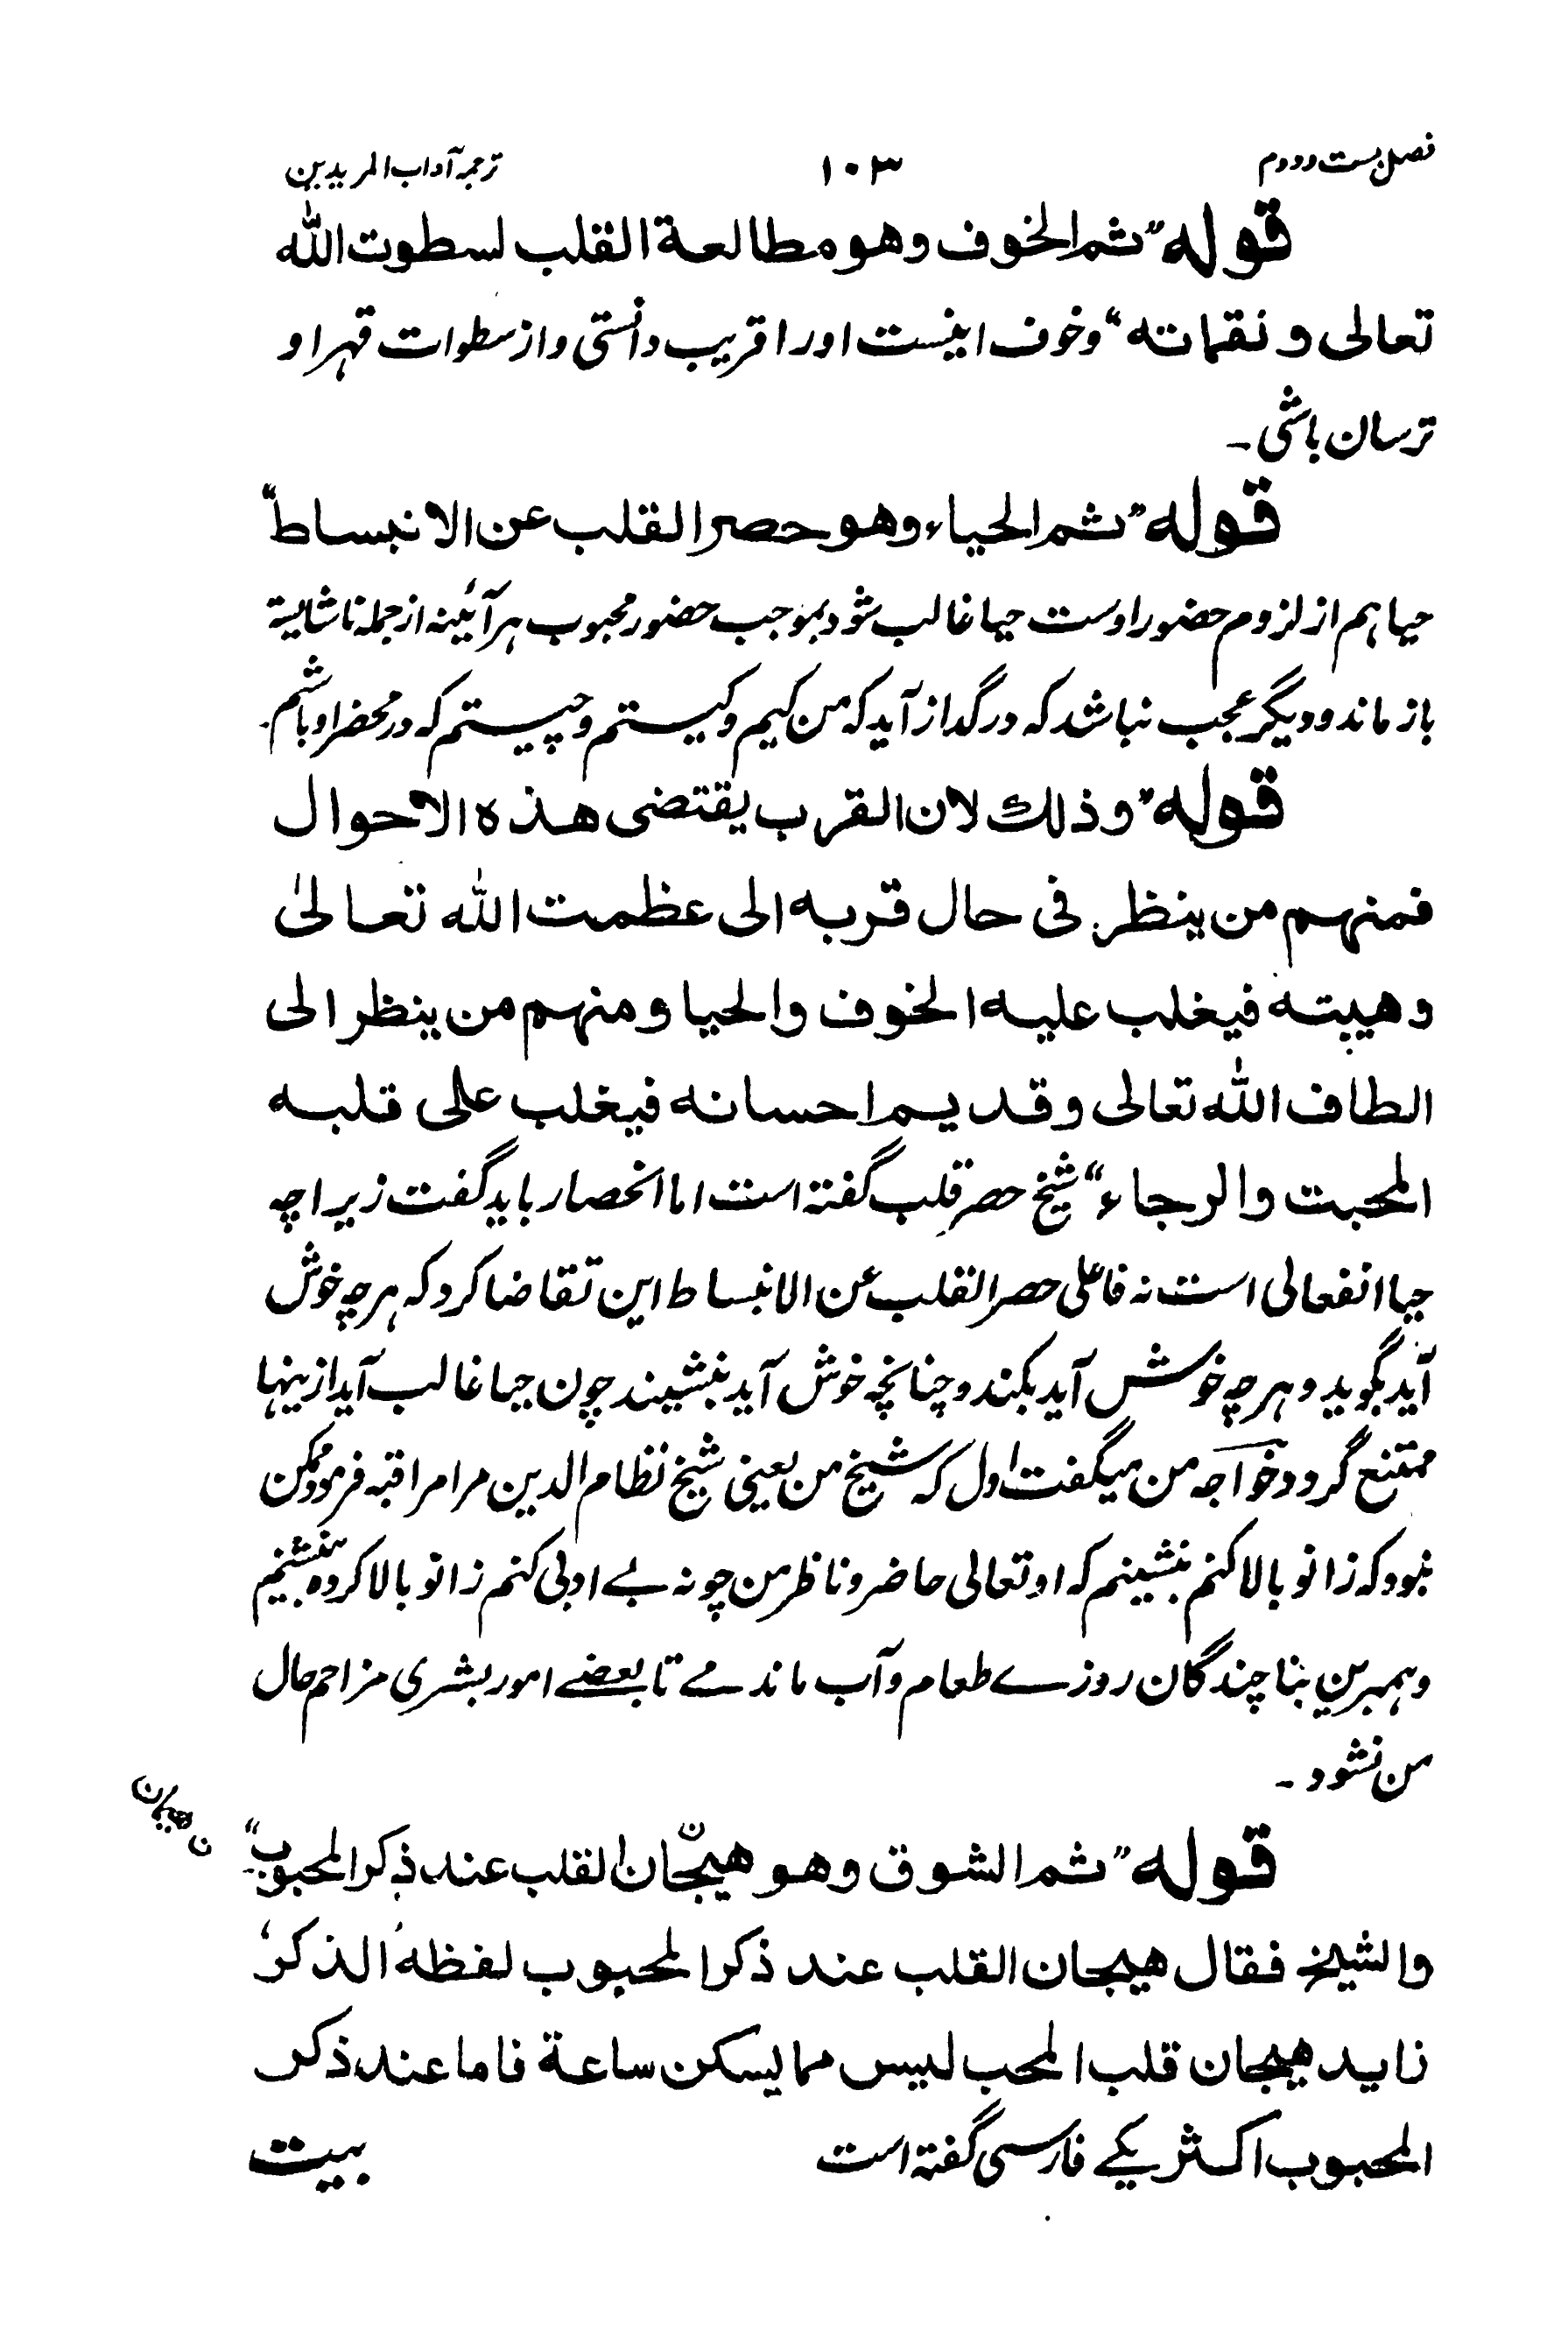 فصل بست و دوم ۱۰۳ ترجمہ آداب المریدین
قوله "ثم الخوف وهو مطالعة القلب لسطوت الله
تعالى و نقماته" و خوف اینست اورا قریب دانستی و از سطوات قہر او
ترسان باشی ۔
قوله "ثم الحیاء وهو حصر القلب عن الانبساط"
حیا ہم از لزوم حضور اوست حیا غالب شود بموجب حضور محبوب ہر آئینہ از جملہ ناشایستہ
باز ماند و دیگر عجب نباشد کہ در گداز آید کہ من کیم و کیستم و چیستم کہ در محضر او باشم۔
قوله "و ذلك لان القرب یقتضی هذه الاحوال
فمنهم من ینظر فی حال قربه الی عظمت الله تعالیٰ
وهیبته فیغلب علیه الخوف والحیا ومنهم من ینظر الی
الطاف الله تعالی وقدیم احسانه فیغلب علی قلبه
المحبت والرجاء" شیخ حصر قلب گفتہ است اما انحصار باید گفت زیراچہ
حیا انفعالی است نہ فاعلی حصر القلب عن الانبساط این تقاضا کرد کہ ہر چہ خوش
آید بگوید و ہر چہ خوش آید بکند و چنانچہ خوش آید بنشیند چون حیا غالب آید ازینہا
ممتنع گردد و خواجہ من میگفت اول کہ شیخ من یعنی شیخ نظام الدین مرا مراقبہ فرمود ممکن
نبود کہ زانو بالا کنم بنشینم کہ او تعالی حاضر و ناظر من چونہ بے ادبی کنم زانو بالا کردہ بنشینم
و ہمبرین بنا چندگان روزے طعام و آب ماندمے تا بعضے امور بشری مزاحم حال
من نشود ۔
قوله "ثم الشوق وهو هیجان القلب عند ذکر المحبوب"
والشیخ فقال هیجان القلب عند ذکر المحبوب لفظه 'الذکر'
زاید هیجان قلب المحب لیس مما یسکن ساعة فاما عند ذکر
المحبوب اکثر یکے فارسی گفتہ است بیت